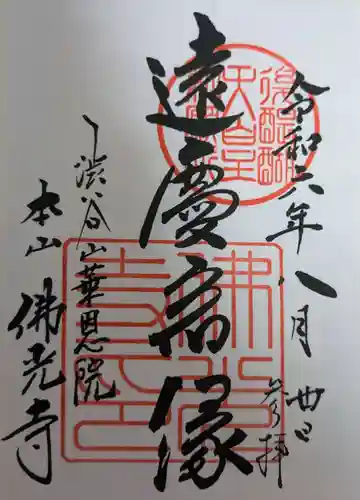 令和六年八月廿日
参拝
遠慶宿縁
渋谷山華恩院
本山佛光寺
後醍醐天皇